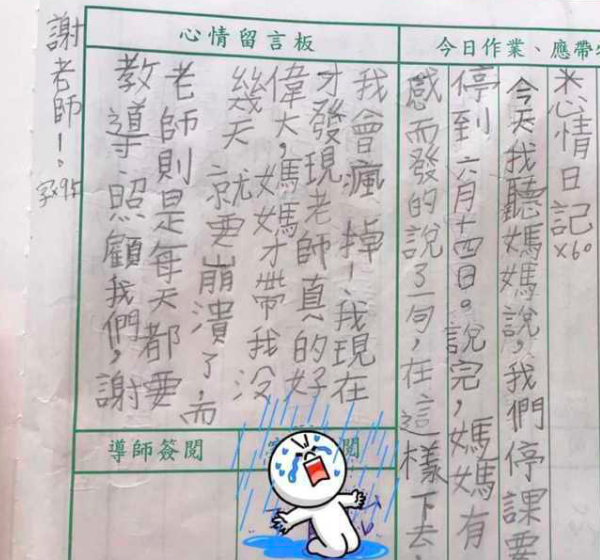 心情留言板
今日作業、應帶
※心情日記
x60
今天我聽媽媽說，我們停課要
停到六月十四日。說完，媽媽有
感而發的說了一句，在這樣下去，
我會瘋掉！、我現在
才發現老師真的好
偉大，媽媽才帶我沒
幾天就要崩潰了，而
老師則是每天都要
教導、照顧我們，謝
謝老師！。
字x95
導師簽閱
閱